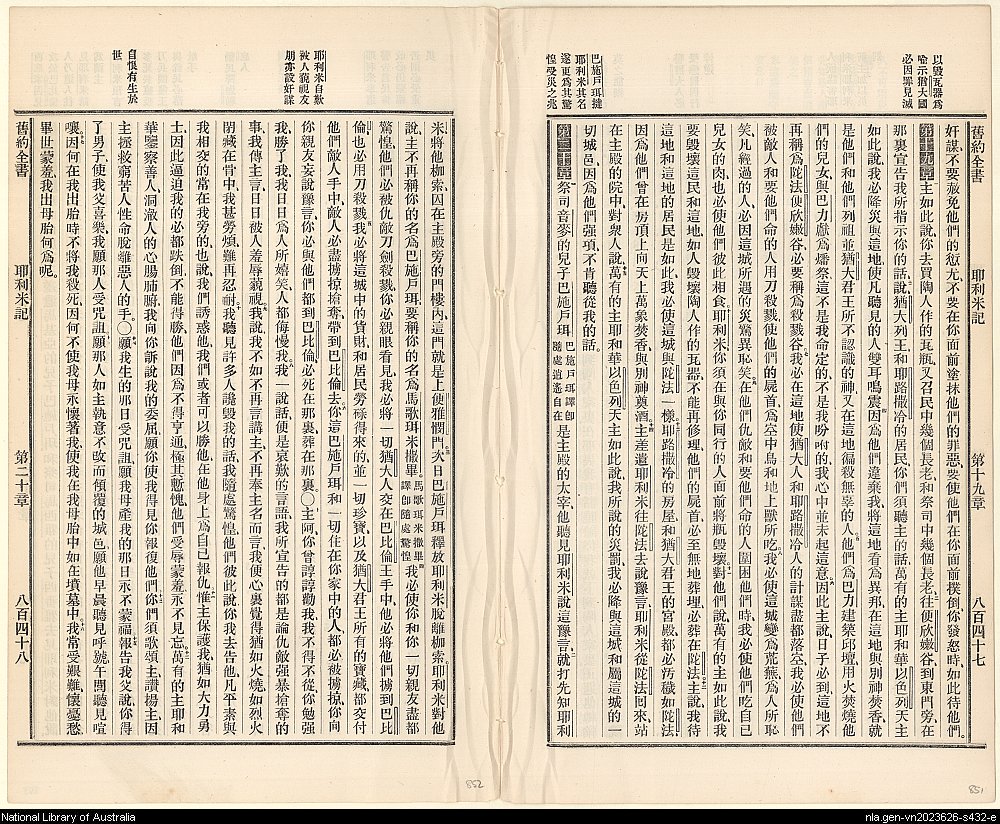 以毀瓦器為
喻示猶大國
必因罪見滅
巴施戶珥撻
耶利米其名
遂更為其驚
惶受災之兆
舊約全書 耶利米記 第十九章 八百四十七
奸謀不要赦免他們的愆尤不要在你面前塗抹他們的罪惡要使他們在你面前撲倒你發怒時如此待他們。
第十九章主如此說你去買陶人作的瓦瓶又召民中幾個長老和祭司中幾個長老往便欣嫩谷到東門旁在
那裏宣告我所指示你的話說猶大列王和耶路撒冷的居民你們須聽主的話萬有的主耶和華以色列天主
如此說我必降災與這地使凡聽見的人雙耳鳴震因為他們違棄我將這地看為異邦在這地與別神焚香就
是他們和他們列祖並猶大君王所不認識的神又在這地徧殺無辜的人他們為巴力建築邱壇用火焚燒他
們的兒女與巴力獻為燔祭這不是我命定的不是我吩咐的我心中並未起這意因此主說日子必到這地不
再稱為陀法便欣嫩谷必要稱為殺戮谷我必在這地使猶大人和耶路撒冷人的計謀盡都落空我必使他們
被敵人和要他們命的人用刀殺戮使他們的屍首為空中鳥和地上獸所吃我必使這城變為荒蕪為人所恥
笑凡經過的人必因這城所遇的災驚異恥笑在他們仇敵和要他們命的人圍困他們時我必使他們吃自己
兒女的肉也必使他們彼此相食耶利米你須在與你同行的人面前將瓶毀壞對他們說萬有的主如此說我
要毀壞這民和這地如人毀壞陶人作的瓦器不能再修理他們的屍首必至無地葬埋必葬在陀法主說我待
這地和這地的居民是如此我必使這城與陀法一樣耶路撒冷的房屋和猶大君王的宮殿都必污穢如陀法
因為他們曾在房頂上向天上萬象焚香與別神奠酒主差遣耶利米往陀法去說豫言耶利米從陀法回來站
在主殿的院中對衆人說萬有的主耶和華以色列天主如此說我所說的災罰我必降與這城和屬這城的一
切城邑因為他們强項不肯聽從我的話。
第二十章祭司音麥的兒子巴施戶珥巴施戶珥譯即隨處逍遙自在是主殿的太宰他聽見耶利米說這豫言就打先知耶利
耶利米自歎
被人藐視友
朋亦設奸謀
自恨有生於
世
米將他枷索囚在主殿旁的門樓內這門就是上便雅憫門次日巴施戶珥釋放耶利米脫離枷索耶利米對他
說主不再稱你的名為巴施戶珥要稱你的名為馬歌珥米撒畢馬歌珥米撒畢譯即隨處驚惶我必使你和你一切親友盡都
驚惶他們必被仇敵刀劍殺戮你必親眼看見我必將一切猶大人交在巴比倫王手中他必將他們擄到巴比
倫也必用刀殺戮我必將這城中的貨財和居民勞碌得來的並一切珍寶以及猶大君王所有的寶藏都交付
他們敵人手中敵人必盡擄掠搶奪帶到巴比倫去你這巴施戶珥和一切住在你家中的人都必被擄掠你向
你親友妄說豫言你必與他們都到巴比倫必死在那裏葬在那裏〇主阿你曾諄諄勸我我不得不從你勉强
我勝了我我日日為人所嬉笑人都侮慢我我一說話便是哀歎的言語我所宣告的都是論仇敵强暴搶奪的
事我傳主言日日被人羞辱藐視我說我不如不再言講主不再奉主名而言我便心裏覺得猶如火燒如烈火
閉藏在骨中我甚勞煩難再忍耐我聽見許多人譭毀我的話我隨處驚惶他們彼此說你我去告他凡平素與
我相交的常在我旁的也說我們誘惑他我們或者可以勝他在他身上為自己報仇惟主保護我猶如大力勇
士因此逼迫我的必都跌倒不能得勝他們因為不得亨通極其慙愧他們受辱蒙羞永不見忘萬有的主耶和
華鑒察善人洞澈人的心腸肺腑我向你訴說我的委屈願你使我得見你報復他們你們須歌頌主讚揚主因
主拯救窮苦人性命脫離惡人的手。〇願我生的那日受咒詛願我母產我的那日永不蒙福報告我父說你得
了男子使我父喜樂我願那人受咒詛願那人如主執意不改而傾覆的城邑願他早晨聽見呼號午間聽見喧
嚷因何在我出胎時不將我殺死因何不使我母永懷著我使我在我母胎中如在墳墓中我常受艱難懷憂愁
畢世蒙羞我出母胎何為呢。
舊約全書 耶利米記 第二十章 八百四十八
852
851
National Library of Australia
nla.gen-vn2023626-s432-e